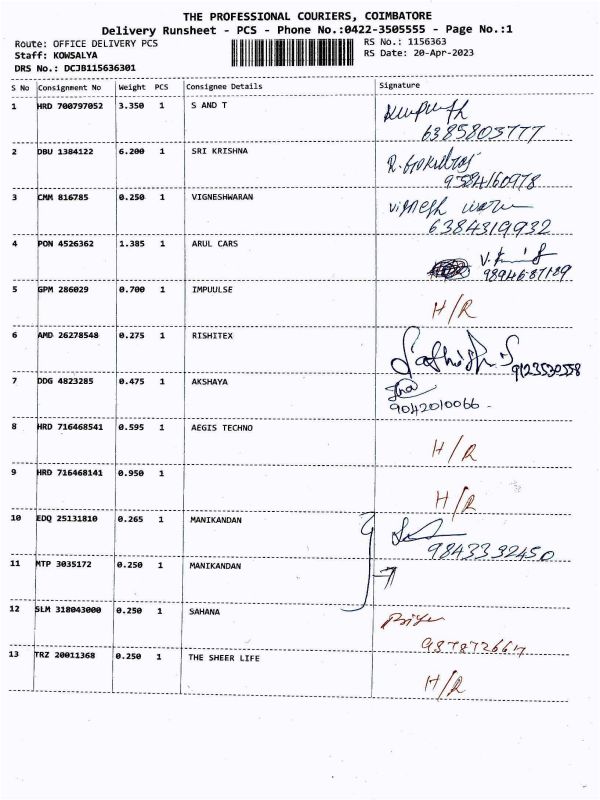 THE PROFESSIONAL COURIERS, COIMBATORE
Delivery Runsheet - PCS - Phone No.:0422-3505555 - Page No.:1
Route: OFFICE DELIVERY PCS RS No.: 1156363
Staff: KOWSALYA RS Date: 20-Apr-2023
DRS No.: DCJB115636301
S No Consignment No Weight PCS Consignee Details Signature
1 HRD 700797052 3.350 1 S AND T
6385803777
2 DBU 1384122 6.200 1 SRI KRISHNA R. Gokulraj
9384160978
3 CMM 816785 0.250 1 VIGNESHWARAN Vignesh waran
6384319932
4 PON 4526362 1.385 1 ARUL CARS
9894687189
5 GPM 286029 0.700 1 IMPUULSE H/R
6 AMD 26278548 0.275 1 RISHITEX Sathish.S
9123530558
7 DDG 4823285 0.475 1 AKSHAYA
9042010066 -
8 HRD 716468541 0.595 1 AEGIS TECHNO H/R
9 HRD 716468141 0.950 1 H/R
10 EDQ 25131810 0.265 1 MANIKANDAN
9843332450
11 MTP 3035172 0.250 1 MANIKANDAN
12 SLM 318043000 0.250 1 SAHANA
13 TRZ 20011368 0.250 1 THE SHEER LIFE H/R